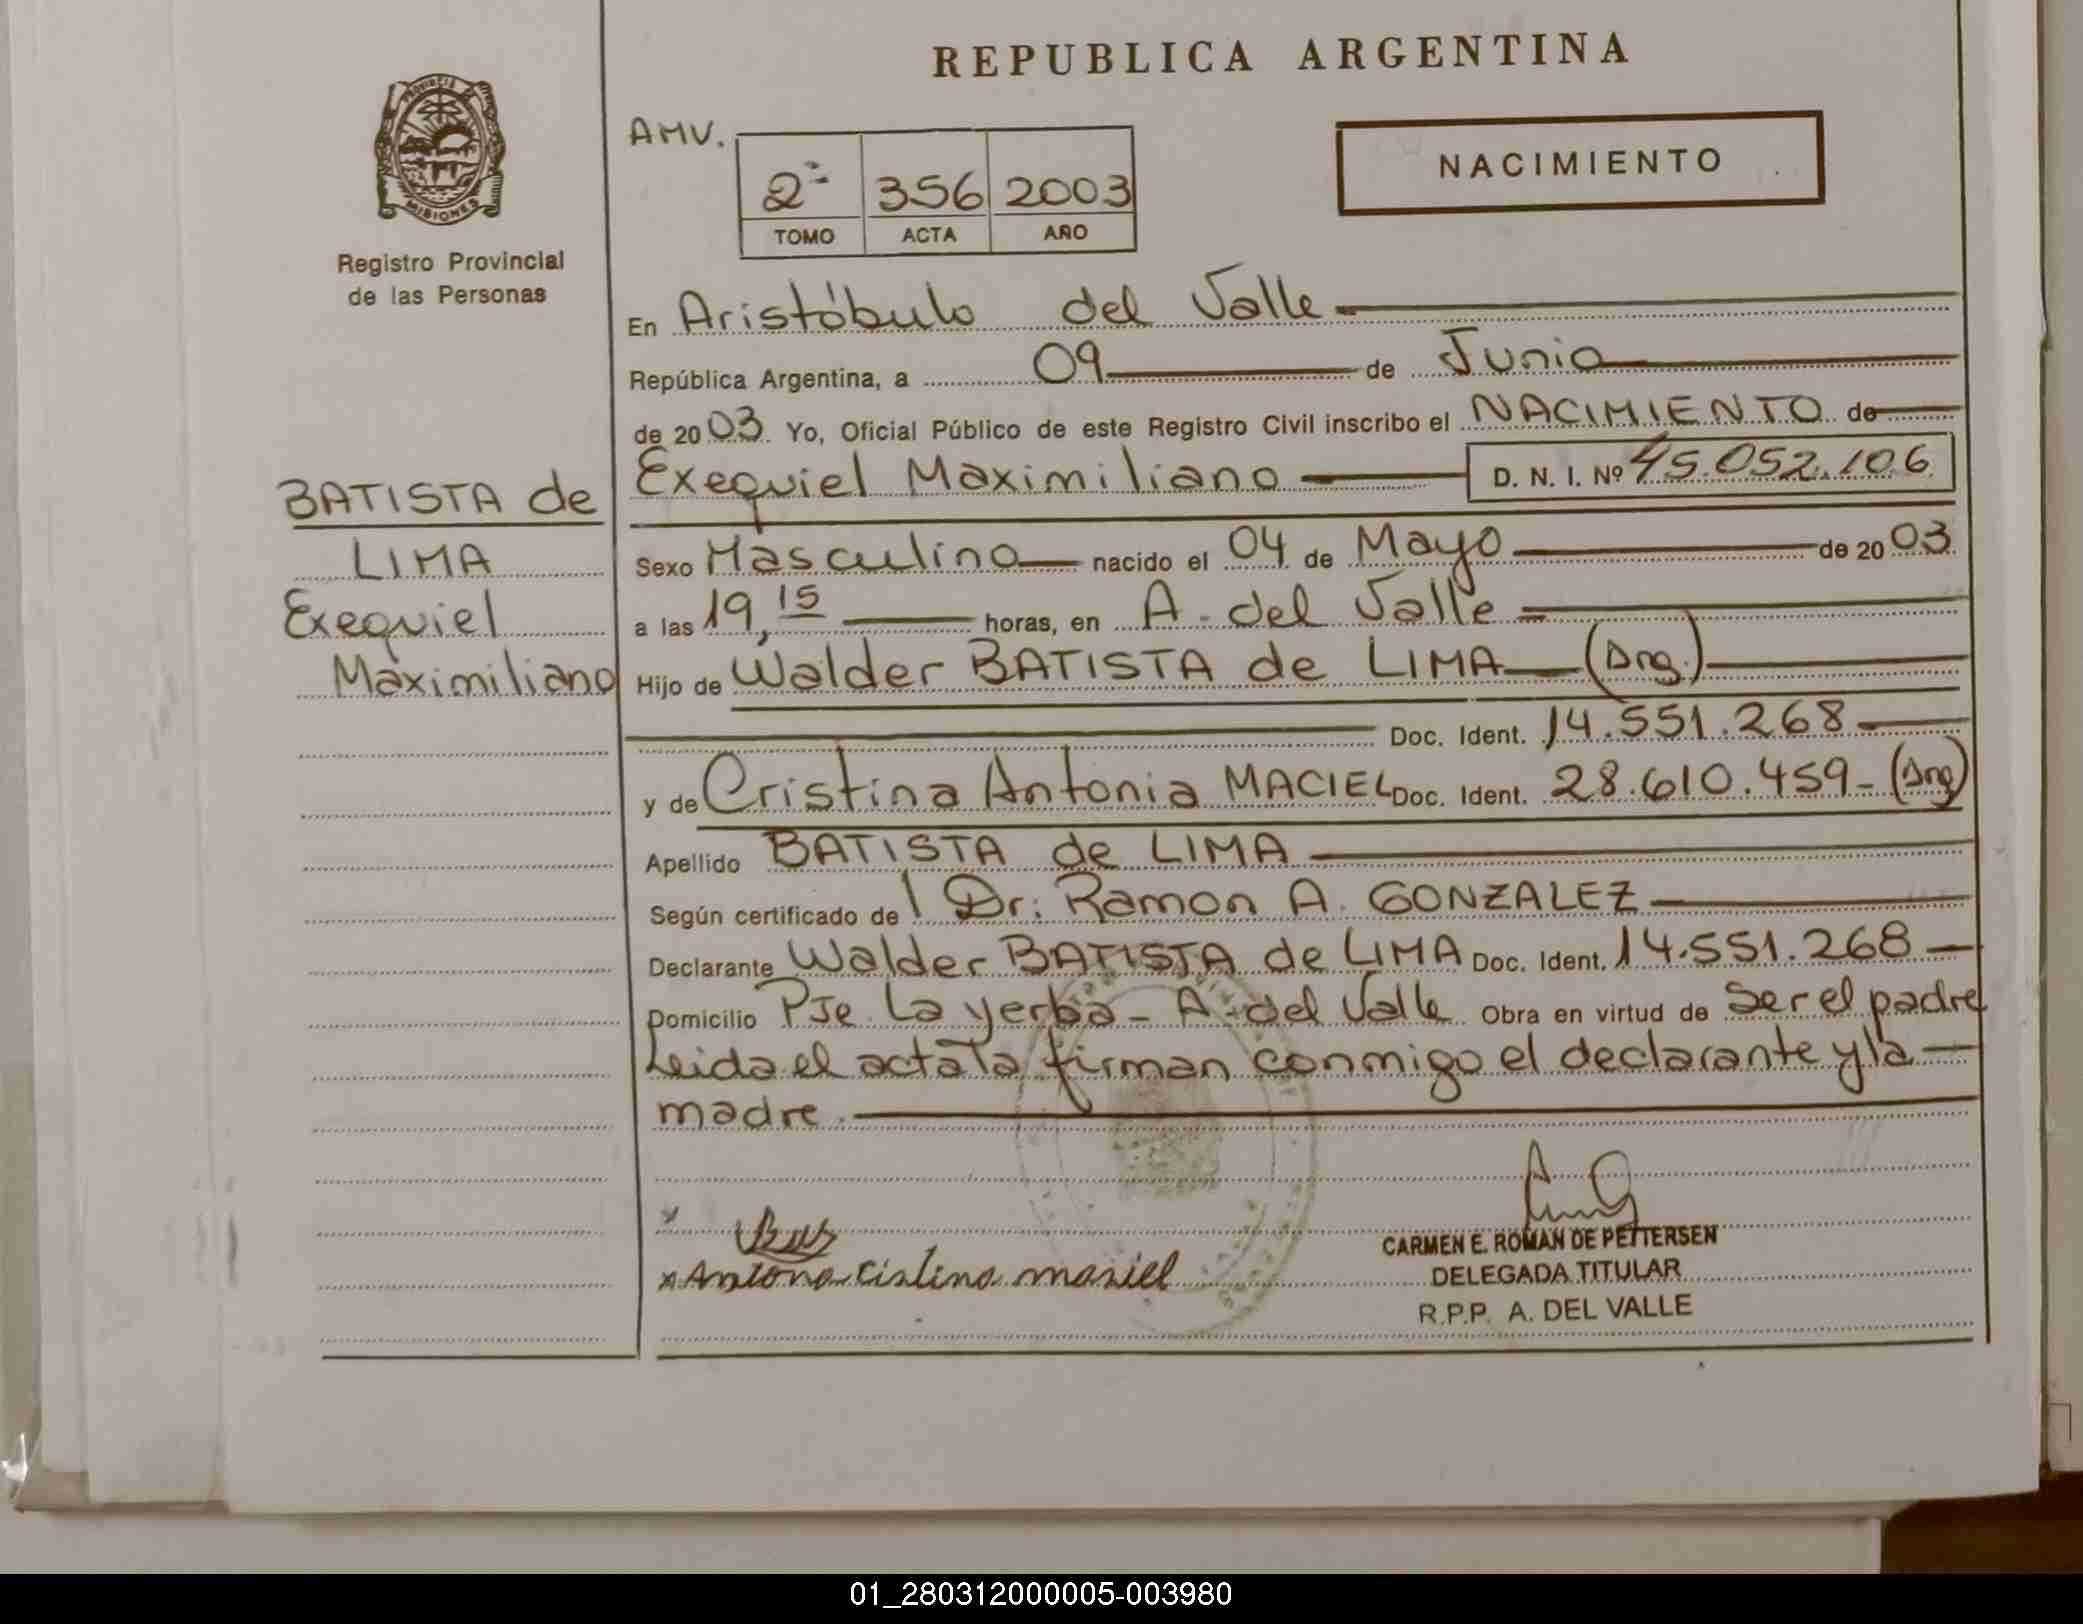 REPUBLICA ARGENTINA
PROVINCIA DE
MISIONES
Registro Provincial
de las Personas
AMV.
2º 356 2003
TOMO ACTA AÑO
NACIMIENTO
BATISTA de
LIMA
Exequiel
Maximiliano
En Aristóbulo del Valle
República Argentina, a 09 de Junio
de 2003. Yo, Oficial Público de este Registro Civil inscribo el NACIMIENTO de
Exequiel Maximiliano D. N. I. Nº 45.052.106
Sexo Masculino nacido el 04 de Mayo de 2003
a las 19,15 horas, en A. del Valle
Hijo de Walder BATISTA de LIMA (Arg.)
Doc. Ident. 14.551.268
y de Cristina Antonia MACIEL Doc. Ident. 28.610.459 - (Arg)
Apellido BATISTA de LIMA
Según certificado de l Dr: Ramon A. GONZALEZ
Declarante Walder BATISTA de LIMA Doc. Ident. 14.551.268
Domicilio PJe. La yerba - A. del Valle Obra en virtud de Ser el padre
Leida el acta la firman conmigo el declarante y la
madre.
x Antona cistina masiel
CARMEN E. ROMAN DE PETTERSEN
DELEGADA TITULAR
R.P.P. A. DEL VALLE
01_280312000005-003980